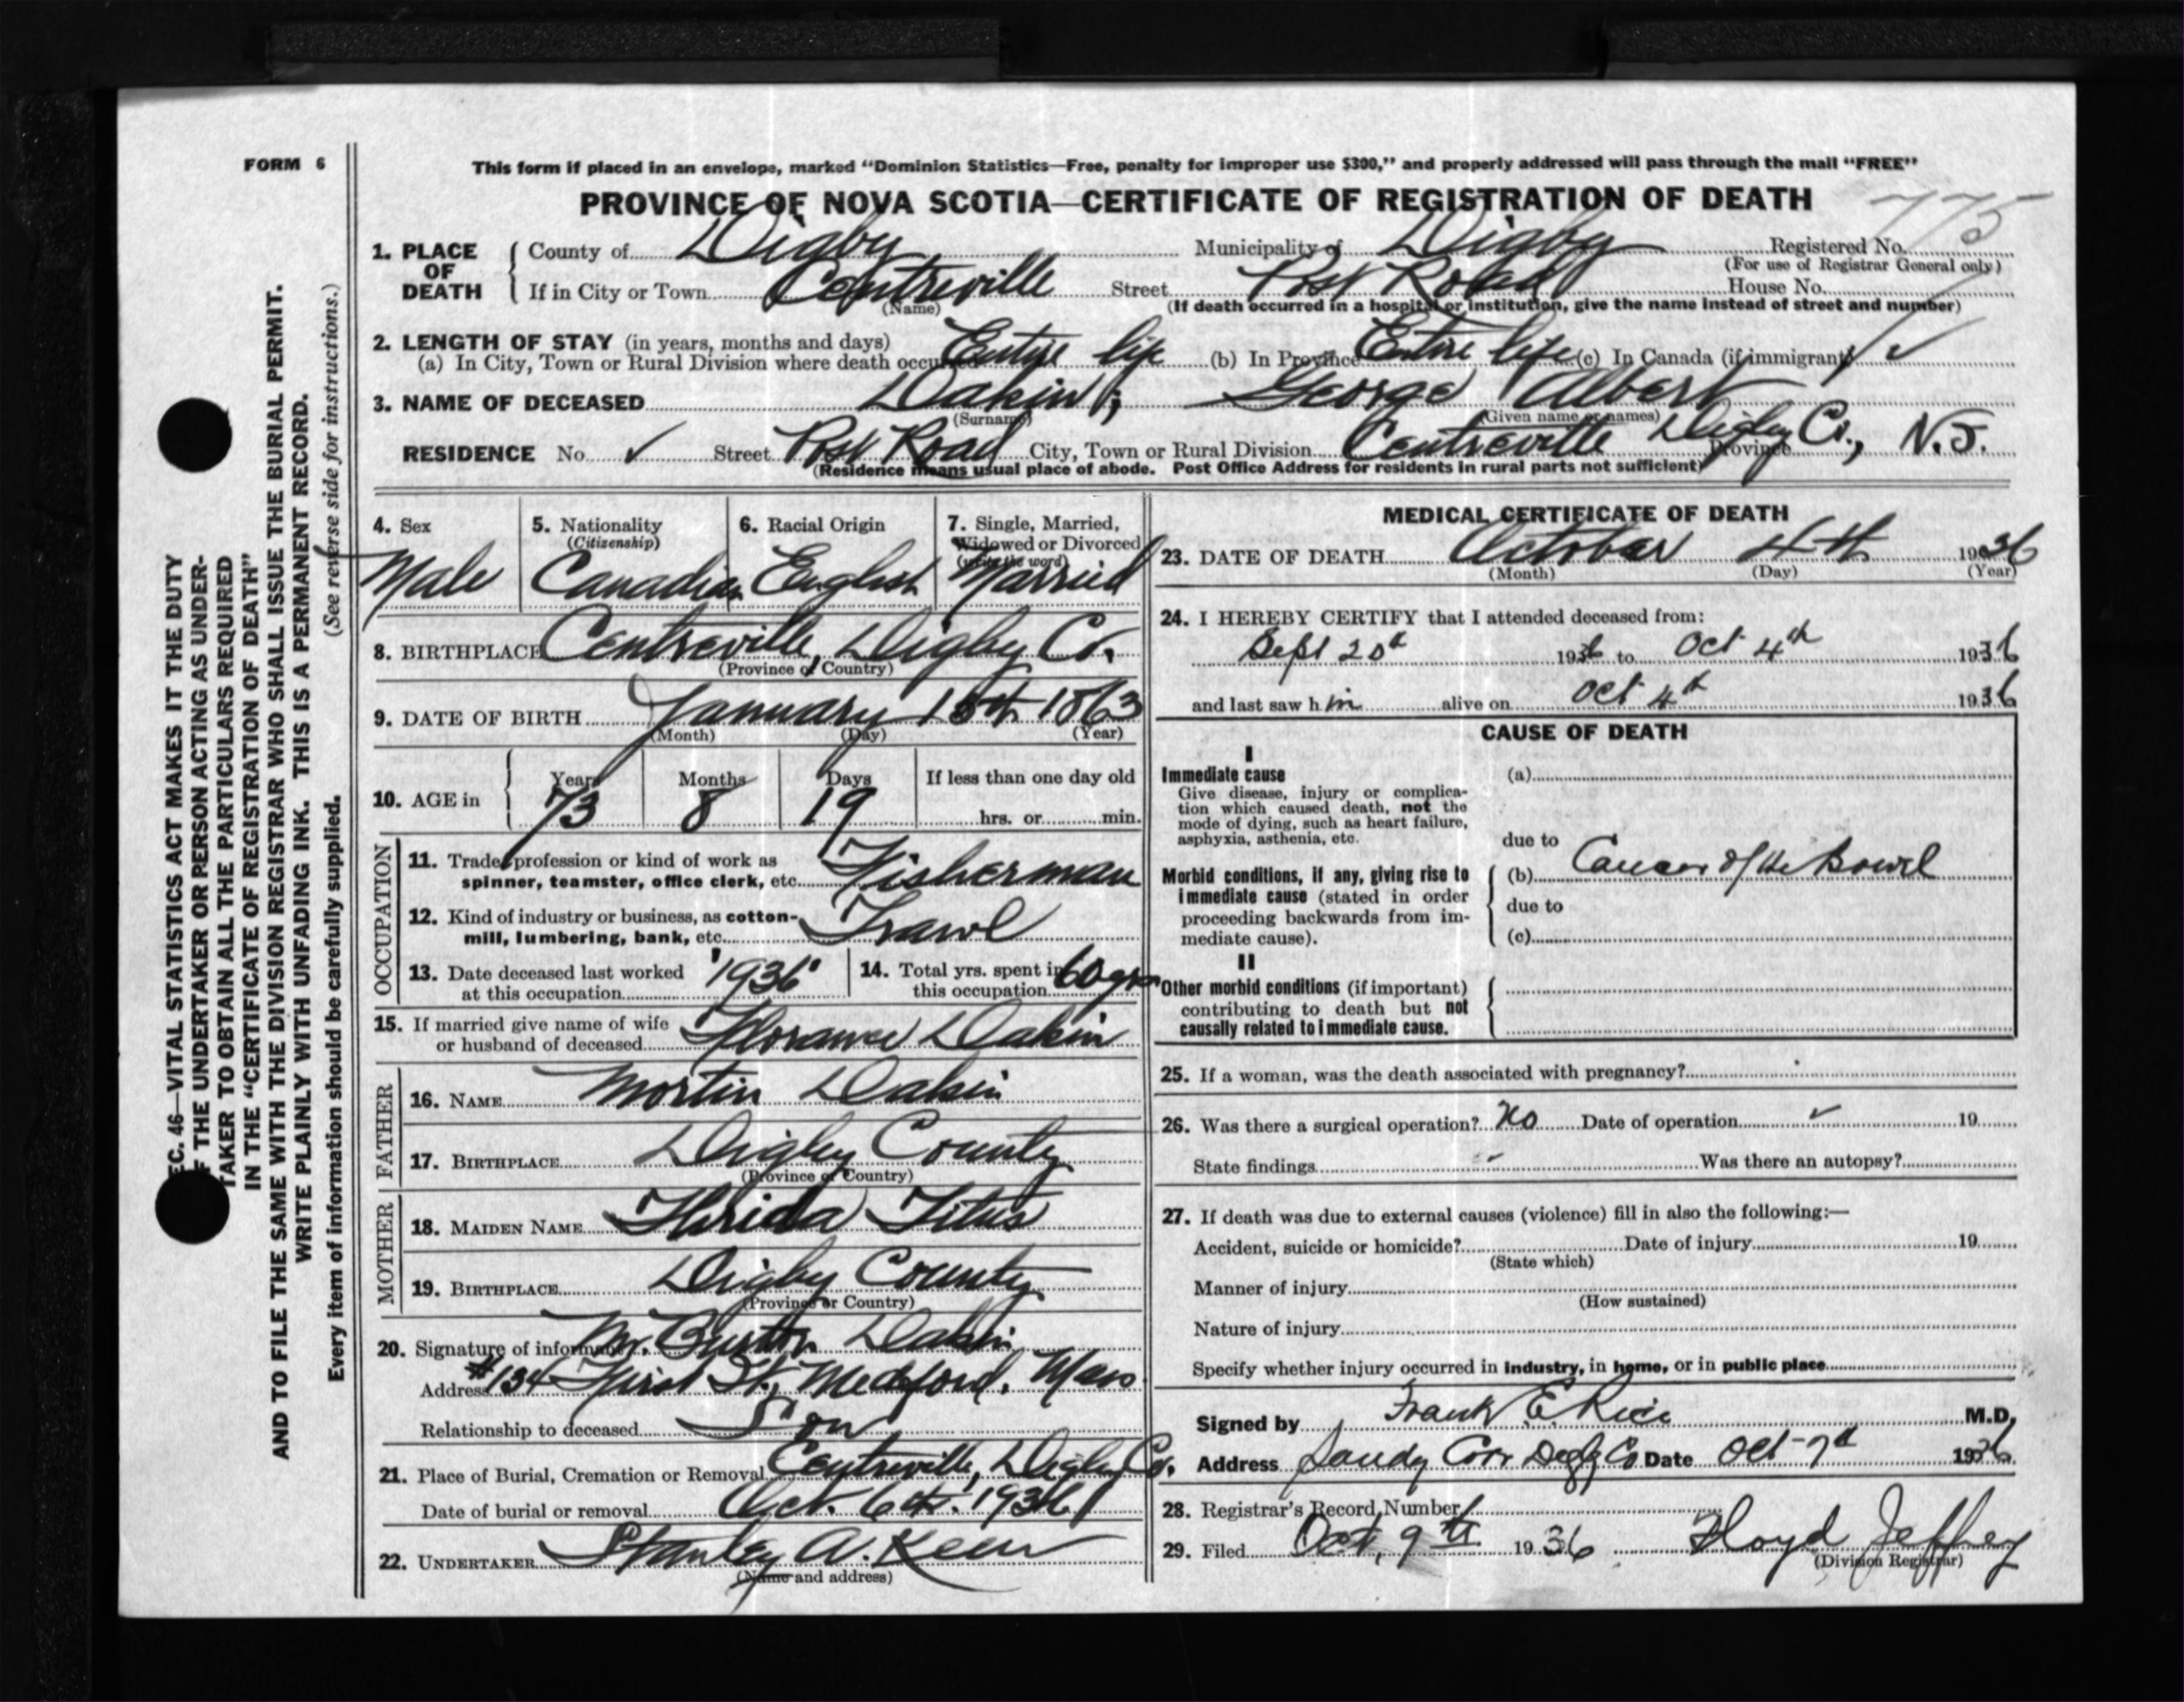 FORM 6
This form if placed in an envelope, marked "Dominion Statistics—Free, penalty for improper use $300," and properly addressed will pass through the mail "FREE"
PROVINCE OF NOVA SCOTIA—CERTIFICATE OF REGISTRATION OF DEATH
775
1. PLACE OF DEATH County of Digby Municipality of Digby Registered No.
(For use of Registrar General only)
If in City or Town Centreville Street Post Road House No.
(Name) (If death occurred in a hospital or institution, give the name instead of street and number)
2. LENGTH OF STAY (in years, months and days)
(a) In City, Town or Rural Division where death occurred Entire life (b) In Province Entire life (c) In Canada (if immigrant) ✓
3. NAME OF DECEASED Dakin, George Albert
(Surname) (Given name or names)
RESIDENCE No. ✓ Street Post Road City, Town or Rural Division Centreville Digby Co., N.S.
Province
(Residence means usual place of abode. Post Office Address for residents in rural parts not sufficient)
4. Sex 5. Nationality (Citizenship) 6. Racial Origin 7. Single, Married, Widowed or Divorced (write the word)
Male Canadian English Married
8. BIRTHPLACE Centreville, Digby Co.
(Province or Country)
9. DATE OF BIRTH January 15th 1863
(Month) (Day) (Year)
10. AGE in Years Months Days If less than one day old
73 8 19 hrs. or min.
OCCUPATION
11. Trade, profession or kind of work as
spinner, teamster, office clerk, etc. Fisherman
12. Kind of industry or business, as cotton-
mill, lumbering, bank, etc. Trawl
13. Date deceased last worked
at this occupation "1936"
14. Total yrs. spent in
this occupation 60 yrs
15. If married give name of wife
or husband of deceased Florance Dakin
FATHER
16. NAME Mortin Dakin
17. BIRTHPLACE Digby County
(Province or Country)
MOTHER
18. MAIDEN NAME Titus
19. BIRTHPLACE Digby County
(Province or Country)
20. Signature of informant Mr. Burton Dakin
Address #134 St., Medford, Mass
Relationship to deceased Son
21. Place of Burial, Cremation or Removal Centreville, Digby Co.
Date of burial or removal Oct. 6th. 1936
22. UNDERTAKER Stanley A. Keen
(Name and address)
MEDICAL CERTIFICATE OF DEATH
23. DATE OF DEATH October 4th 1936
(Month) (Day) (Year)
24. I HEREBY CERTIFY that I attended deceased from:
Sept 20th 1936 to Oct 4th 1936
and last saw him alive on Oct 4th 1936
CAUSE OF DEATH
I
Immediate cause (a)
Give disease, injury or complica-
tion which caused death, not the
mode of dying, such as heart failure,
asphyxia, asthenia, etc.
due to
Morbid conditions, if any, giving rise to (b) Cancer of the Bowel
immediate cause (stated in order due to
proceeding backwards from im-
mediate cause). (c)
II
Other morbid conditions (if important)
contributing to death but not
causally related to immediate cause.
25. If a woman, was the death associated with pregnancy?
26. Was there a surgical operation? No Date of operation ✓ 19
State findings Was there an autopsy?
27. If death was due to external causes (violence) fill in also the following:—
Accident, suicide or homicide? Date of injury 19
(State which)
Manner of injury
(How sustained)
Nature of injury
Specify whether injury occurred in industry, in home, or in public place
Signed by Frank E Rice M.D.
Address Sandy Cove Digby Co Date Oct 7th 1936
28. Registrar's Record Number
29. Filed Oct. 9th 1936 Floyd Jeffrey
(Division Registrar)
EC. 46—VITAL STATISTICS ACT MAKES IT THE DUTY
F THE UNDERTAKER OR PERSON ACTING AS UNDER-
TAKER TO OBTAIN ALL THE PARTICULARS REQUIRED
IN THE "CERTIFICATE OF REGISTRATION OF DEATH"
AND TO FILE THE SAME WITH THE DIVISION REGISTRAR WHO SHALL ISSUE THE BURIAL PERMIT.
WRITE PLAINLY WITH UNFADING INK. THIS IS A PERMANENT RECORD.
Every item of information should be carefully supplied. (See reverse side for instructions.)